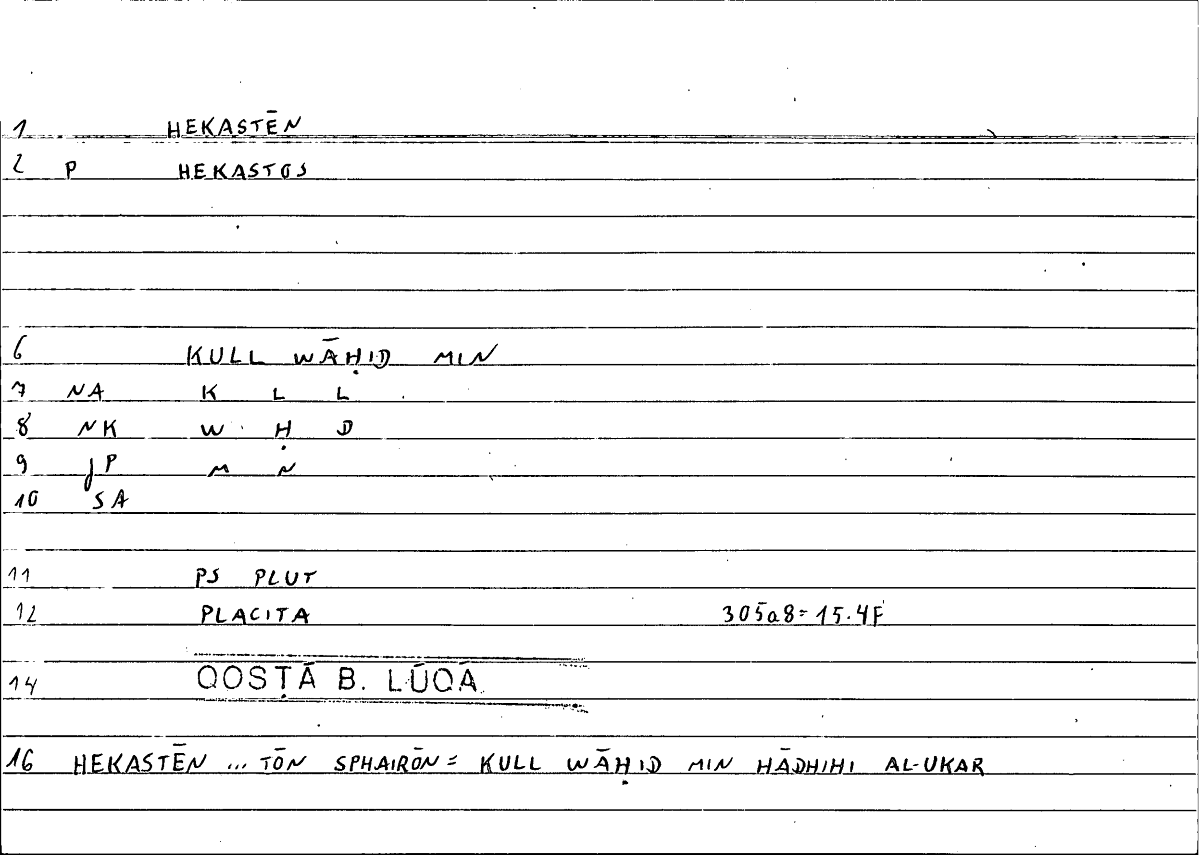 1 HEKASTĒN
2 P HEKASTOS
6 KULL WĀḤID MIN
7 NA K L L
8 NK W Ḥ D
9 JP M N
10 SA
11 PS PLUT
12 PLACITA 305a8=15.4F
14 QOSṬĀ B. LŪQĀ
16 HEKASTĒN ... TŌN SPHAIRŌN = KULL WĀḤID MIN HĀDHIHI AL-UKAR